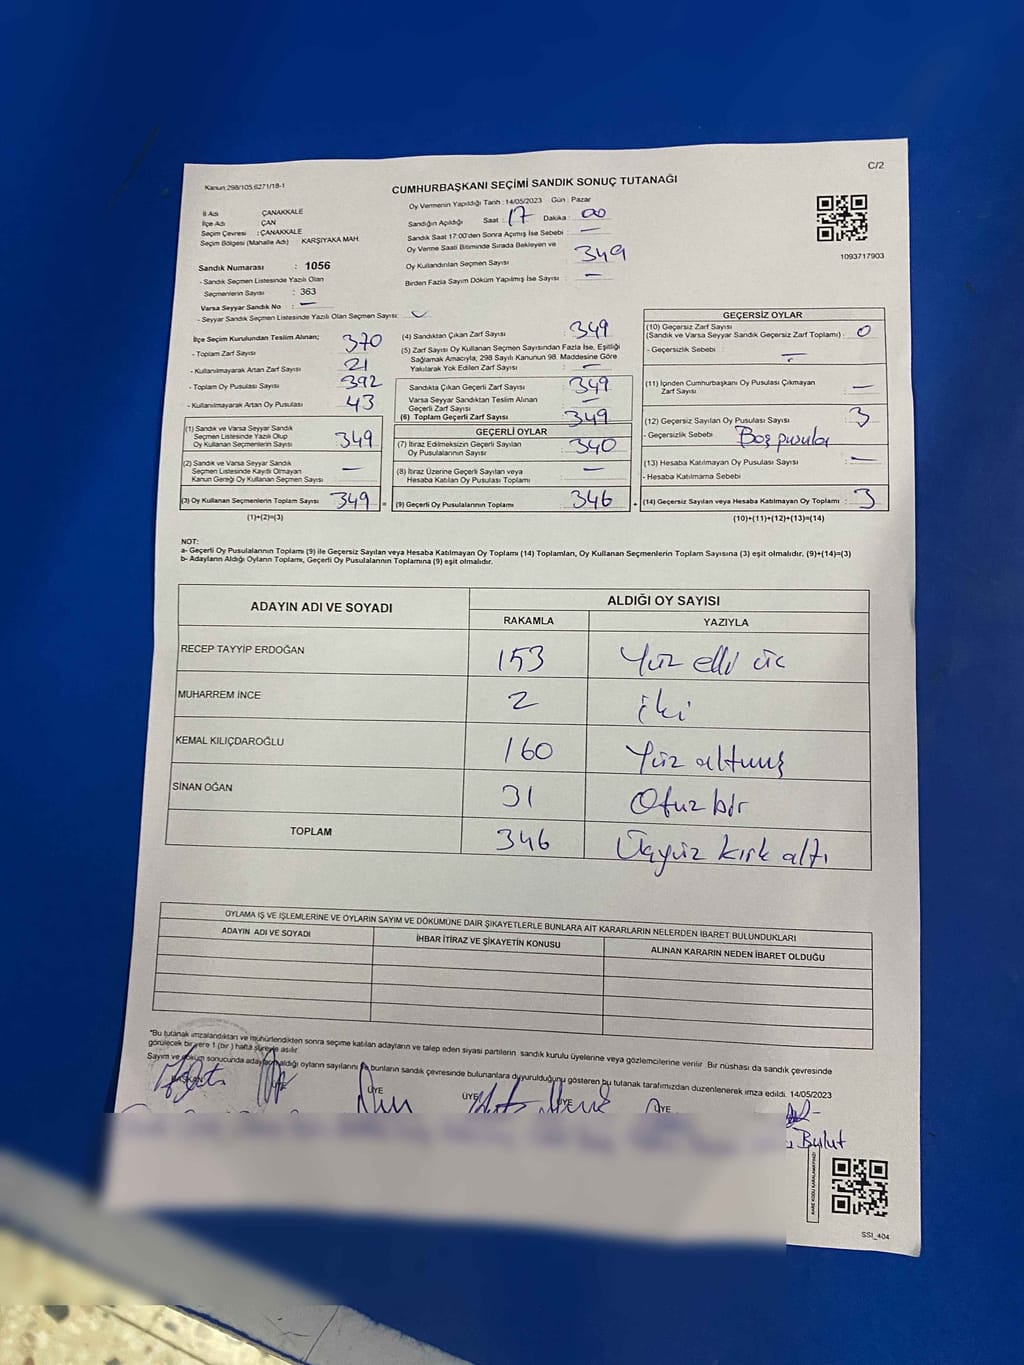 C/2
Kanun,298/105,6271/18-1
CUMHURBAŞKANI SEÇİMİ SANDIK SONUÇ TUTANAĞI
İl Adı ÇANAKKALE
İlçe Adı ÇAN
Seçim Çevresi : ÇANAKKALE
Seçim Bölgesi (Mahalle Adı) KARŞIYAKA MAH.
Sandık Numarası : 1056
- Sandık Seçmen Listesinde Yazılı Olan
Seçmenlerin Sayısı : 363
Varsa Seyyar Sandık No : —
- Seyyar Sandık Seçmen Listesinde Yazılı Olan Seçmen Sayısı:
Oy Vermenin Yapıldığı Tarih : 14/05/2023 Gün : Pazar
Sandığın Açıldığı Saat : 17 Dakika : 00
Sandık Saat 17:00'den Sonra Açılmış İse Sebebi : —
Oy Verme Saati Bitiminde Sırada Bekleyen ve
Oy Kullandırılan Seçmen Sayısı : 349
Birden Fazla Sayım Döküm Yapılmış İse Sayısı : —
1093717903
İlçe Seçim Kurulundan Teslim Alınan;
- Toplam Zarf Sayısı 370
- Kullanılmayarak Artan Zarf Sayısı 21
- Toplam Oy Pusulası Sayısı 392
- Kullanılmayarak Artan Oy Pusulası 43
(1) Sandık ve Varsa Seyyar Sandık
Seçmen Listesinde Yazılı Olup
Oy Kullanan Seçmenlerin Sayısı 349
(2) Sandık ve Varsa Seyyar Sandık
Seçmen Listesinde Kayıtlı Olmayan
Kanun Gereği Oy Kullanan Seçmen Sayısı —
(3) Oy Kullanan Seçmenlerin Toplam Sayısı 349 =
(1)+(2)=(3)
(4) Sandıktan Çıkan Zarf Sayısı : 349
(5) Zarf Sayısı Oy Kullanan Seçmen Sayısından Fazla İse, Eşitliği
Sağlamak Amacıyla, 298 Sayılı Kanunun 98. Maddesine Göre
Yakılarak Yok Edilen Zarf Sayısı : —
Sandıkta Çıkan Geçerli Zarf Sayısı : 349
Varsa Seyyar Sandıktan Teslim Alınan
Geçerli Zarf Sayısı : —
(6) Toplam Geçerli Zarf Sayısı : 349
GEÇERLİ OYLAR
(7) İtiraz Edilmeksizin Geçerli Sayılan
Oy Pusulalarının Sayısı : 340
(8) İtiraz Üzerine Geçerli Sayılan veya
Hesaba Katılan Oy Pusulası Toplamı : —
(9) Geçerli Oy Pusulalarının Toplamı : 346 +
GEÇERSİZ OYLAR
(10) Geçersiz Zarf Sayısı
(Sandık ve Varsa Seyyar Sandık Geçersiz Zarf Toplamı) : 0
- Geçersizlik Sebebi : —
(11) İçinden Cumhurbaşkanı Oy Pusulası Çıkmayan
Zarf Sayısı : —
(12) Geçersiz Sayılan Oy Pusulası Sayısı : 3
- Geçersizlik Sebebi : Boş pusula
(13) Hesaba Katılmayan Oy Pusulası Sayısı : —
- Hesaba Katılmama Sebebi
(14) Geçersiz Sayılan veya Hesaba Katılmayan Oy Toplamı : 3
(10)+(11)+(12)+(13)=(14)
NOT:
a- Geçerli Oy Pusulalarının Toplamı (9) ile Geçersiz Sayılan veya Hesaba Katılmayan Oy Toplamı (14) Toplamları, Oy Kullanan Seçmenlerin Toplam Sayısına (3) eşit olmalıdır. (9)+(14)=(3)
b- Adayların Aldığı Oyların Toplamı, Geçerli Oy Pusulalarının Toplamına (9) eşit olmalıdır.
ADAYIN ADI VE SOYADI ALDIĞI OY SAYISI
RAKAMLA YAZIYLA
RECEP TAYYİP ERDOĞAN 153 Yüz elli üc
MUHARREM İNCE 2 iki
KEMAL KILIÇDAROĞLU 160 Yüz altmış
SİNAN OĞAN 31 Otuz bir
TOPLAM 346 Üçyüz kırk altı
OYLAMA İŞ VE İŞLEMLERİNE VE OYLARIN SAYIM VE DÖKÜMÜNE DAİR ŞİKAYETLERLE BUNLARA AİT KARARLARIN NELERDEN İBARET BULUNDUKLARI
ADAYIN ADI VE SOYADI İHBAR İTİRAZ VE ŞİKAYETİN KONUSU ALINAN KARARIN NEDEN İBARET OLDUĞU
*Bu tutanak imzalandıktan ve mühürlendikten sonra seçime katılan adayların ve talep eden siyasi partilerin sandık kurulu üyelerine veya gözlemcilerine verilir. Bir nüshası da sandık çevresinde
görülecek bir yere 1 (bir) hafta süreyle asılır.
Sayım ve döküm sonucunda adayların aldığı oyların sayılarını ile bunların sandık çevresinde bulunanlara duyurulduğunu gösteren bu tutanak tarafımızdan düzenlenerek imza edildi. 14/05/2023
BAŞKAN ÜYE ÜYE ÜYE ÜYE ÜYE
Bulut
KARE KODU KARALAMAYINIZ!
SSI_404